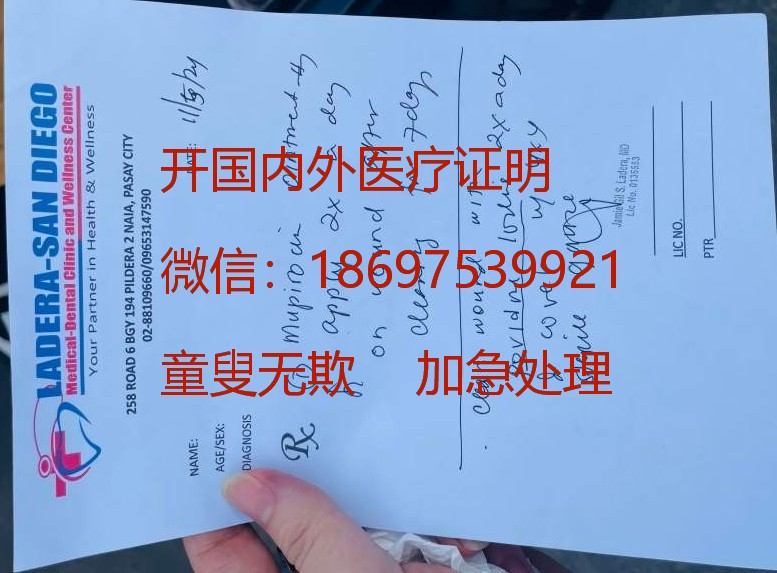 LADERA-SAN DIEGO
Medical-Dental Clinic and Wellness Center
Your Partner in Health & Wellness
258 ROAD 6 BGY 194 PILDERA 2 NAIA, PASAY CITY
02-88109660/09653147590
NAME:
AGE/SEX:
DIAGNOSIS
DATE:
Rx
Mupirocin ointment
apply 2x a day
on wound after
cleaning 7 days
clean wound with
povidone iodine 2x a day
cover w/
sterile gauze
Jamie Gil S. Ladera, MD
Lic No. 0136553
LIC NO.
PTR
开国内外医疗证明
微信：18697539921
童叟无欺 加急处理